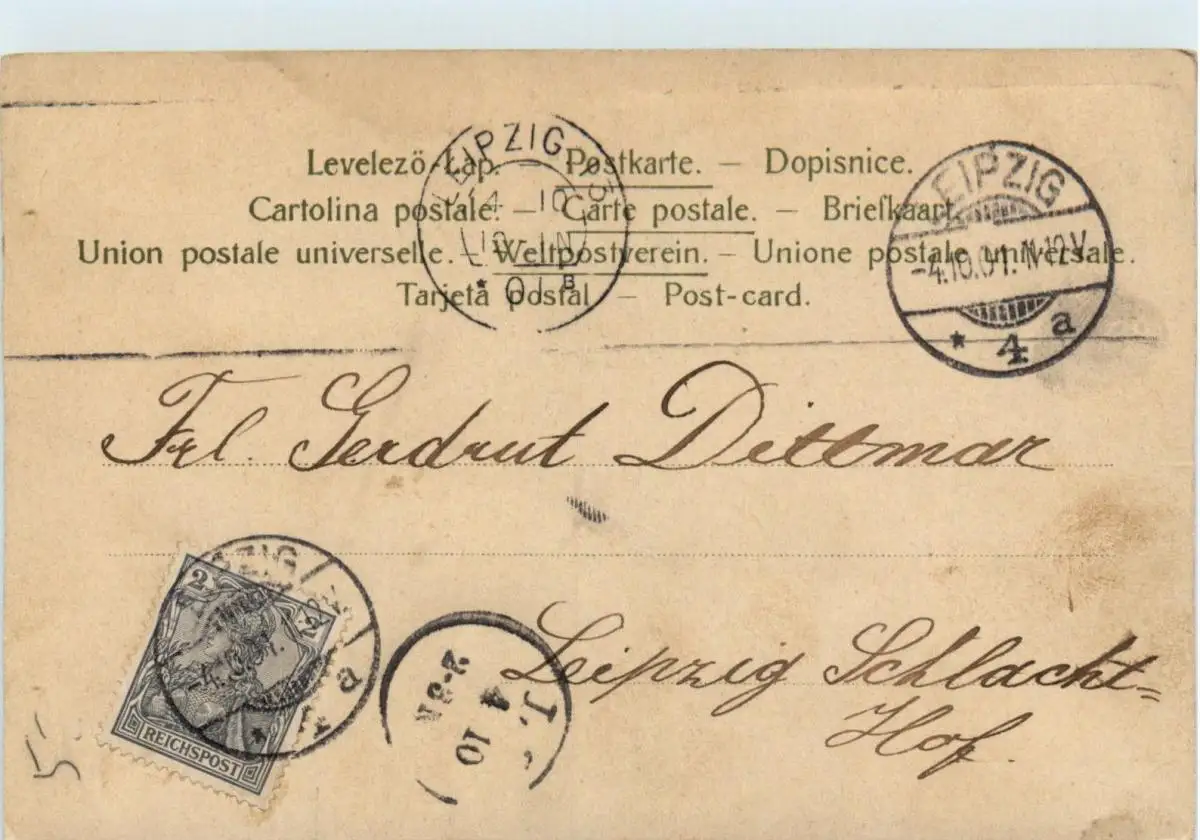 Levelező-Lap. — Postkarte. — Dopisnice.
Cartolina postale. — Carte postale. — Briefkaart.
Union postale universelle. — Weltpostverein. — Unione postale universale.
Tarjeta postal — Post-card.
LEIPZIG
4 10
01 B
LEIPZIG
-4.10.01. 11-12V.
* 4 a
Frl. Gerdrut Dittmar
Leipzig Schlacht=
Hof.
2
REICHSPOST
a
J.
4 10
5